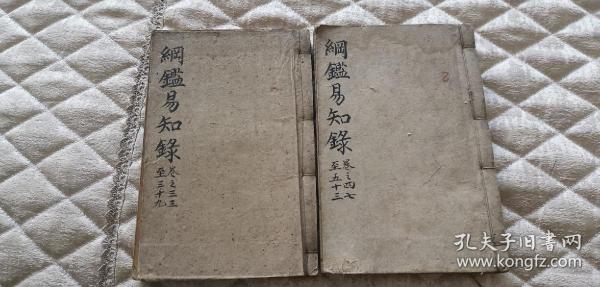 綱鑑易知錄
卷之三五
至三十九
綱鑑易知錄
卷之四七
至五十三
孔夫子旧书网
www.kongfz.com